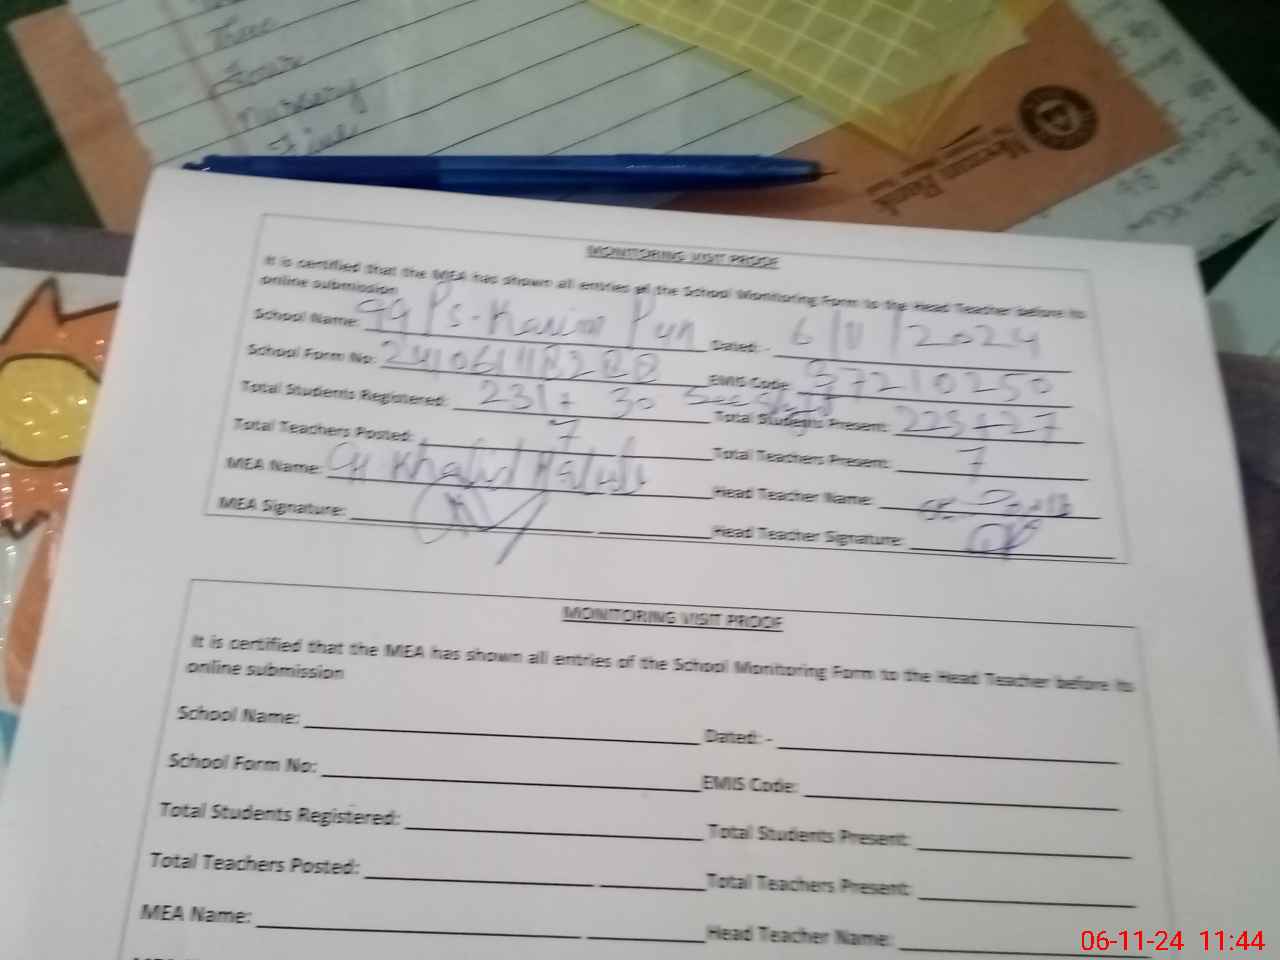 Three
Four
Nursery
Five
Meezan Bank
MONITORING VISIT PROOF
It is certified that the MEA has shown all entries of the School Monitoring Form to the Head Teacher before its
online submission
School Name: Dated: - 6/11/2024
School Form No: EMIS Code: 37210250
Total Students Registered: 231 + 30 Total Students Present: 223+27
Total Teachers Posted: 7 Total Teachers Present: 7
MEA Name: Khalid Head Teacher Name:
MEA Signature: Head Teacher Signature:
MONITORING VISIT PROOF
It is certified that the MEA has shown all entries of the School Monitoring Form to the Head Teacher before its
online submission
School Name: Dated: -
School Form No: EMIS Code:
Total Students Registered: Total Students Present:
Total Teachers Posted: Total Teachers Present:
MEA Name: Head Teacher Name:
06-11-24 11:44